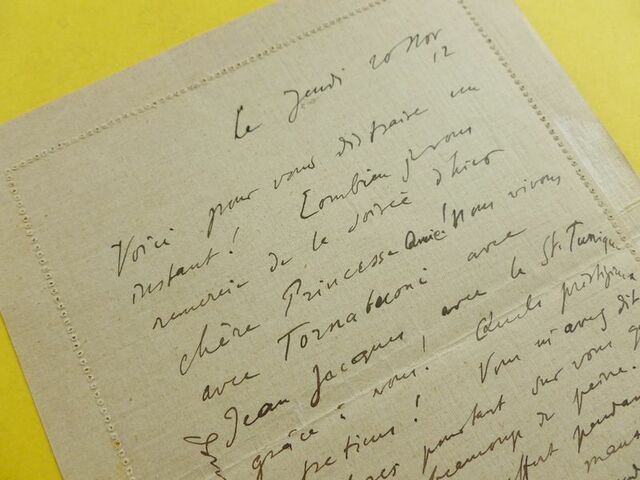 Le Jeudi 20 Nov
12
Voici pour vous distraire un
instant! Combien je vous
remercie de la soirée d'hier
chère Princesse Amie! Nous vivons
avec Tornabuoni avec
Jean Jacques avec la Ste Tunique
grâce à vous! Quels prestigieux
! Vous m'avez dit
pourtant sur vous
beaucoup de peine.
pendant